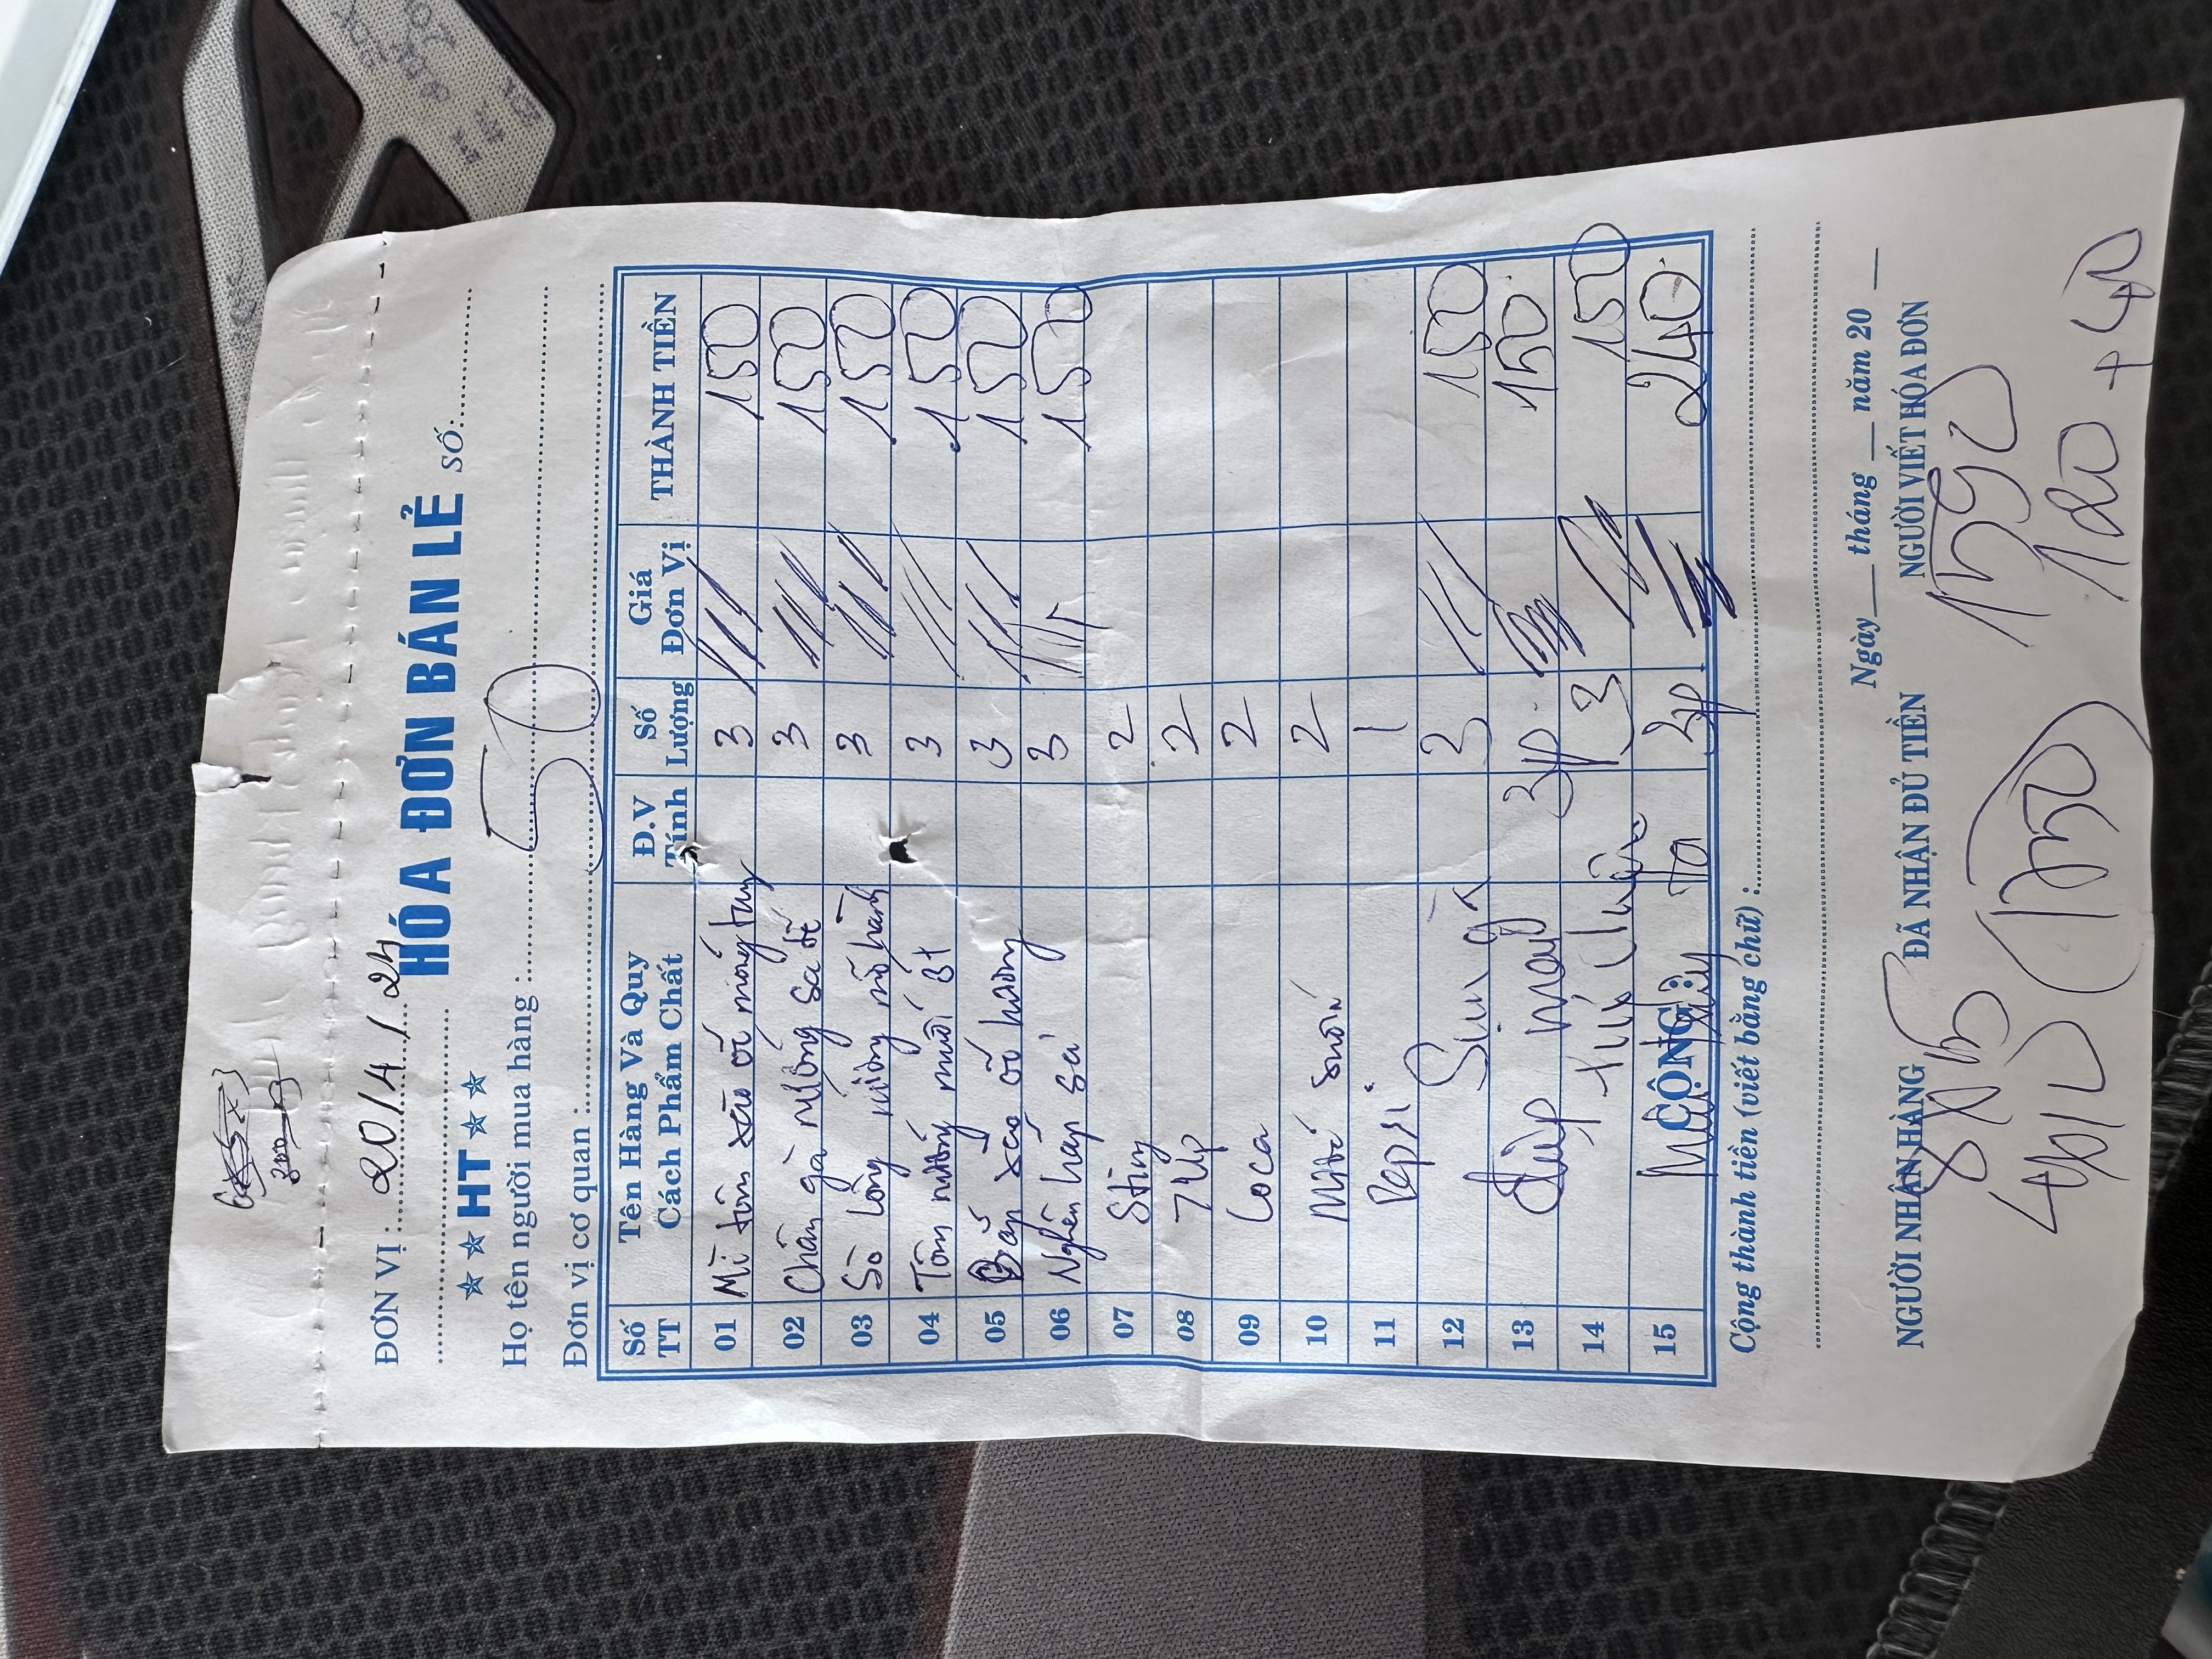 ĐƠN VỊ : 20/4/24
HÓA ĐƠN BÁN LẺ SỐ:
HT
Họ tên người mua hàng : 50
Đơn vị cơ quan :
Số TT Tên Hàng Và Quy Cách Phẩm Chất Đ.V Tính Số Lượng Giá Đơn Vị THÀNH TIỀN
01 Mì tôm xào ốc móng tay 3 150
02 Chân gà nướng sa tế 3 150
03 Sò lông nướng mỡ hành 3 150
04 Tôm nướng muối ớt 3 150
05 Bắp xào ốc hương 3 150
06 Nghêu hấp sả 3 150
07 Sting 2
08 7 Up 2
09 Coca 2
10 suối 2
11 Pepsi 1
12 Sụn gà 3 150
13 3p 150
14 3 150
15 CỘNG : 3p 240
Cộng thành tiền (viết bằng chữ) :
Ngày tháng năm 20
NGƯỜI NHẬN HÀNG ĐÃ NHẬN ĐỦ TIỀN NGƯỜI VIẾT HÓA ĐƠN
8x15 1590
4x10 1750 120 + 40